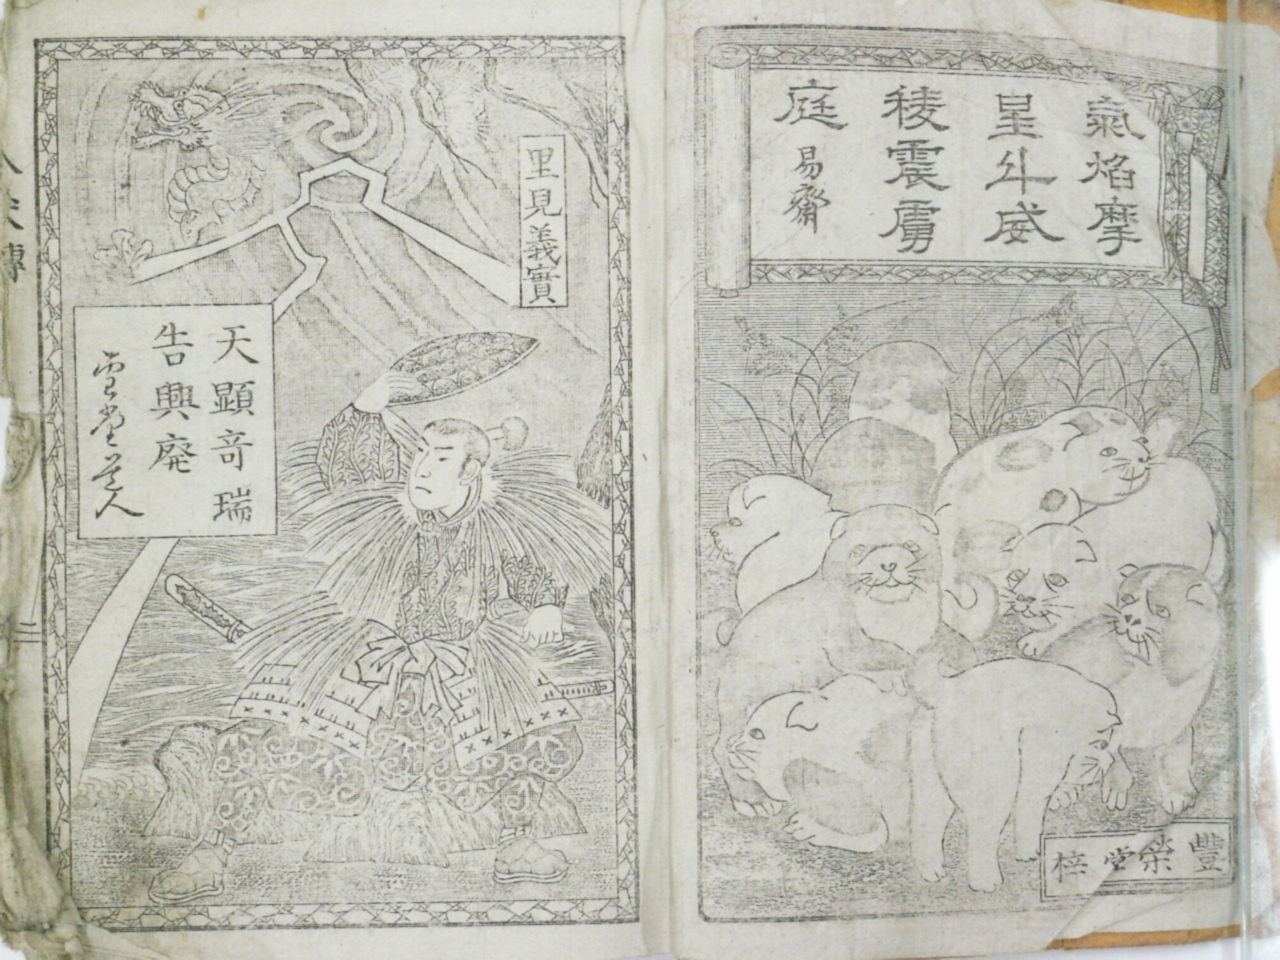 氣焰摩
星斗威
稜震虜
庭 易齋
豐榮堂梓
里見義實
天顯奇瑞
告興廢
人
犬傳
二